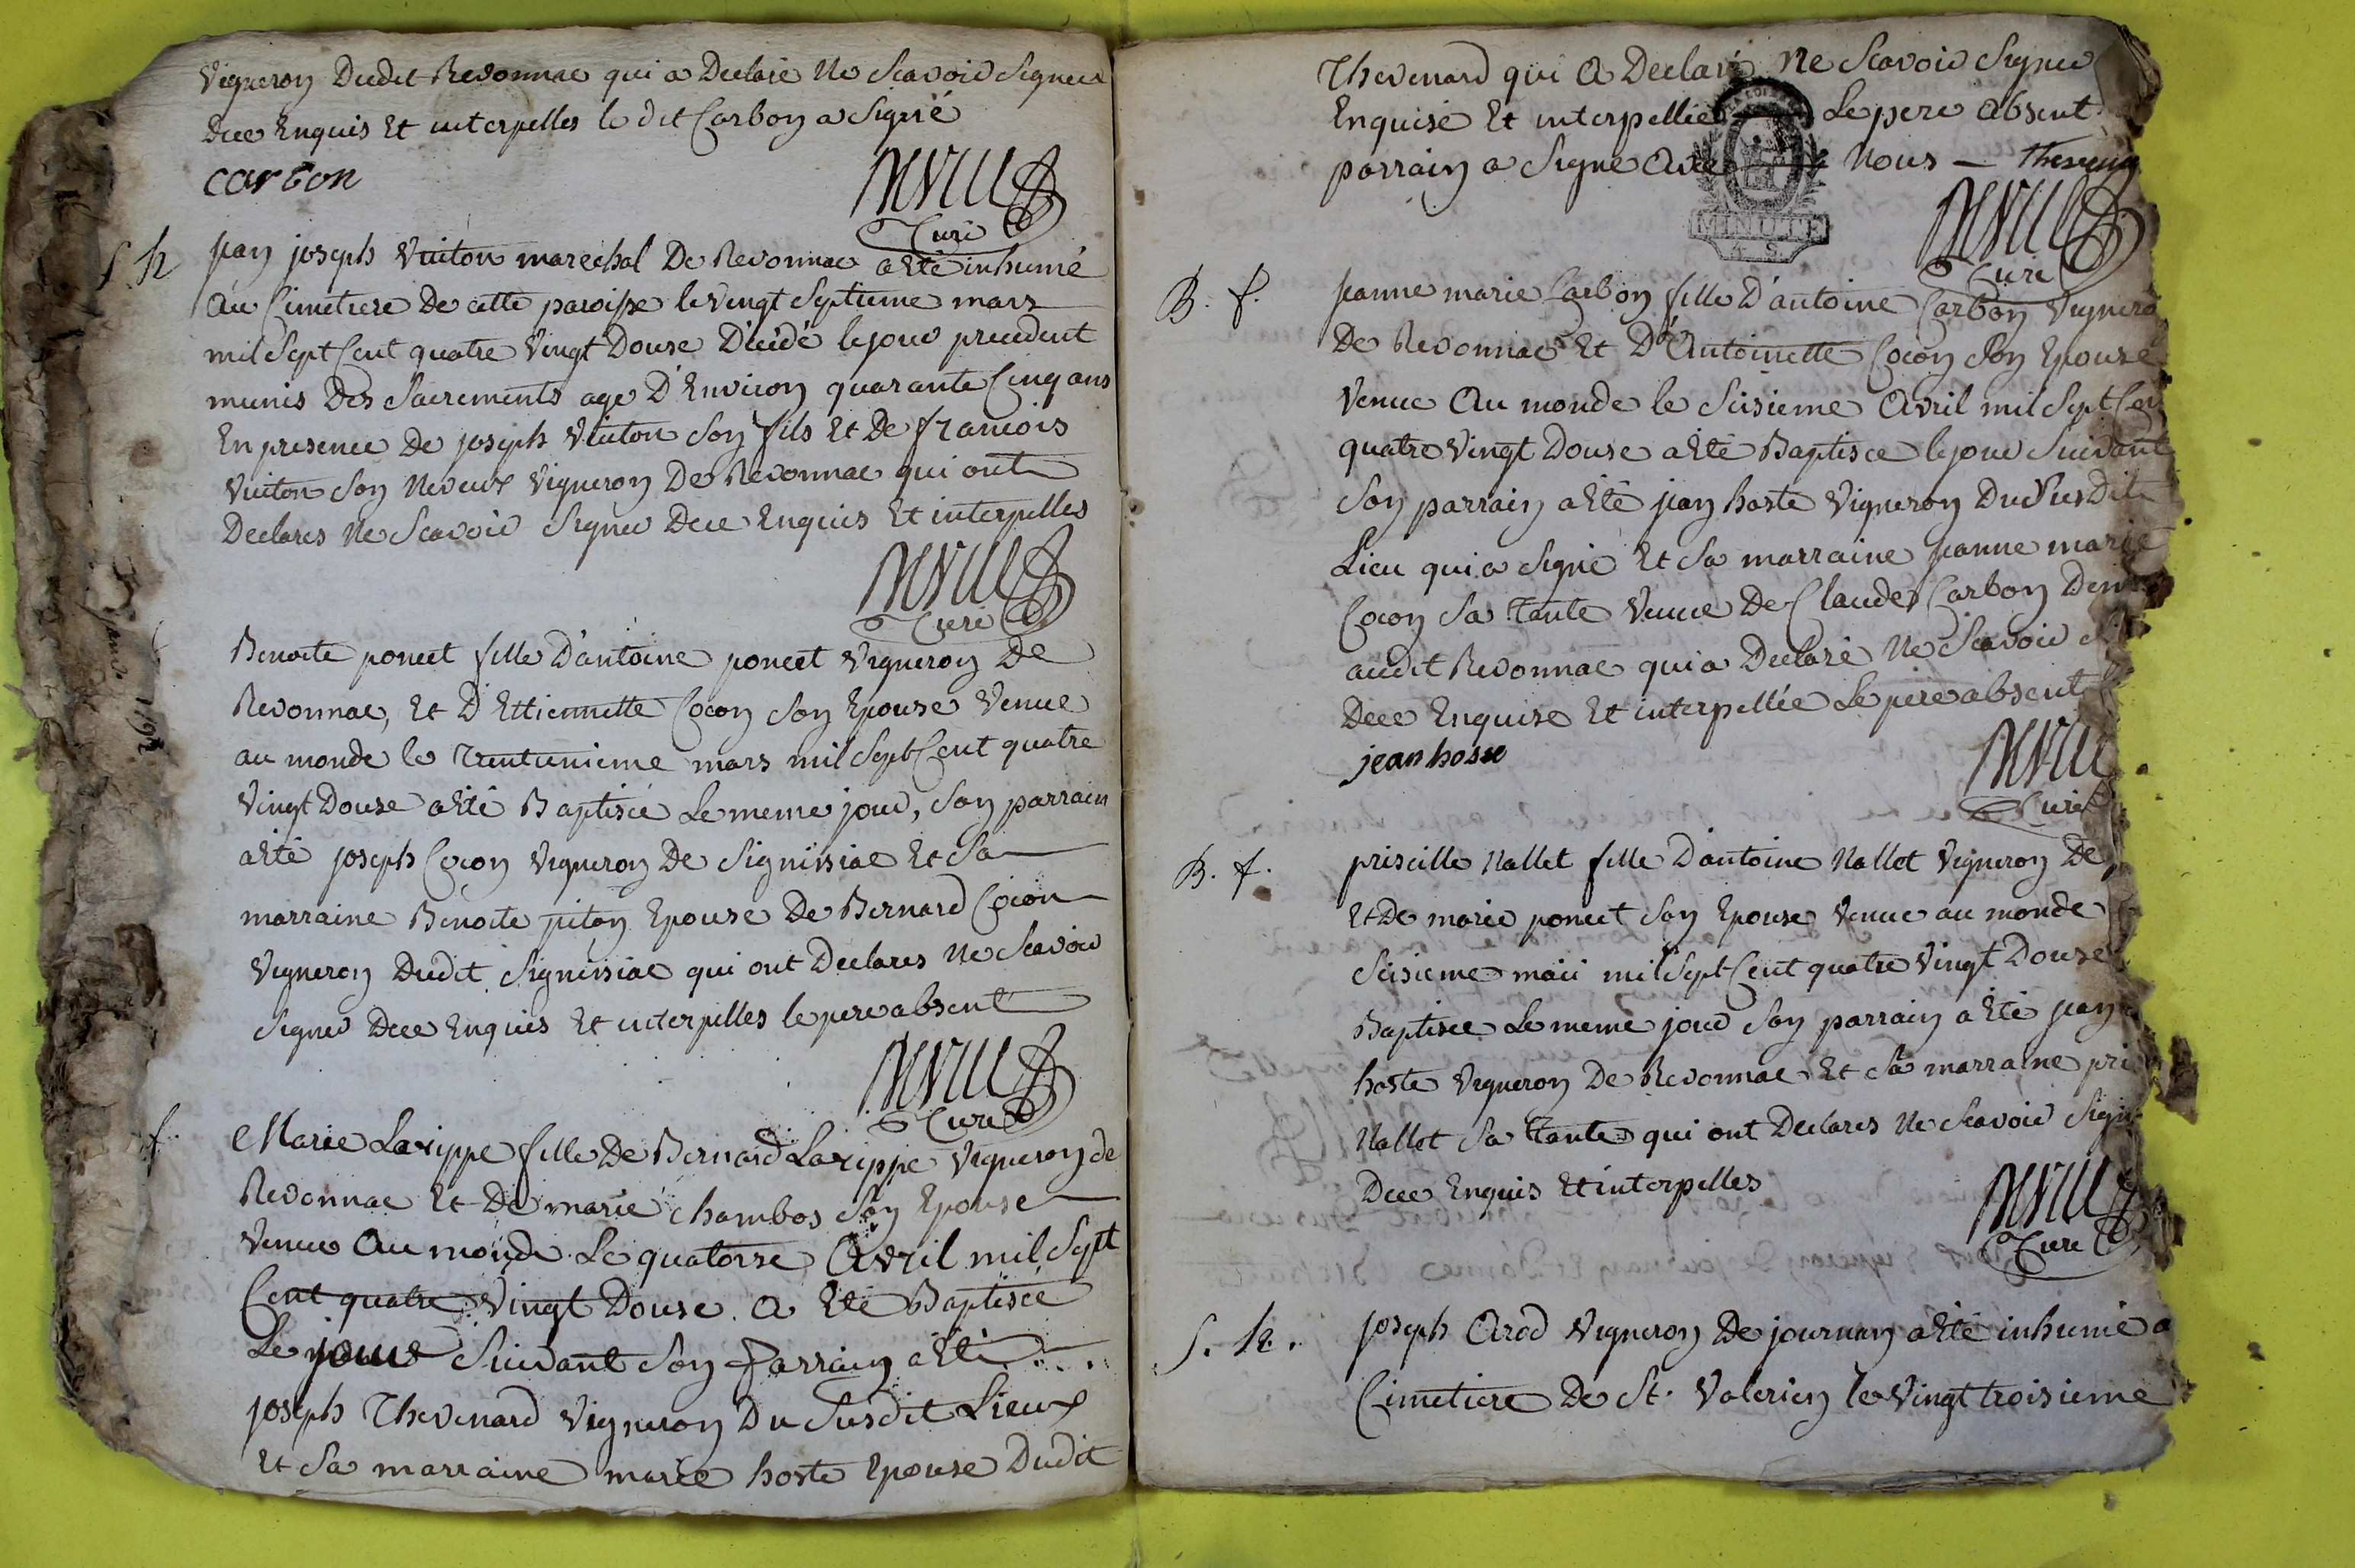 Vigneron Dudit Revonnae qui a Declaré Ne Scavoir Signer
Dee Enquis Et interpelles le dit Carbon a Signé
carbon
Curé
S. h
jean joseph Vuiton marechal De Revonnae a Eté inhumé
Au Cimetiere De cette paroisse le Vingt Septieme mars
mil Sept Cent quatre Vingt Douse Décidé le jour precedent
munis Des Sacrements age D'Environ quarante Cinq ans
En presence De joseph Vuiton Son fils Et De francois
Vuiton Son Neveux Vigneron De Revonnae qui ont
Declares Ne Scavoir Signer Dee Enquis Et interpelles
Curé
Benoite poncet fille D'antoine poncet Vigneron De
Revonnae, Et D Ettiennette Cocon Son Epouse Venue
au monde le Trentunieme mars mil Sept Cent quatre
Vingt Douse a Eté Baptisée Le meme jour, Son parrain
a Eté joseph Cocon Vigneron De Signissiae Et Sa
marraine Benoite piton Epouse De Bernard Cocon
Vigneron Dudit Signissiae qui ont Declares Ne Scavoir
Signer Dee Enquis Et interpelles le pere absent
Curé
f.
Marie Larippe fille De Bernard Larippe Vigneron de
Revonnae Et De marie chambos Son Epouse
Venue Au monde Le quatorse Avril mil Sept
Cent quatre Vingt Douse a Eté Baptisée
Le jour Suivant Son Parrain a Eté
joseph Thevenard Vigneron Du Susdit Lieux
Et Sa marraine marie hoste Epouse Dudit
Thevenard qui A Declaré Ne Scavoir Signer
Enquise Et interpellée Le pere Absent
parrain a Signe Avec Nous —
MINUTE
4 S.
Curé
B. f.
jeanne marie Carbon fille D'antoine Carbon Vignero
De Revonnae Et D'Antoinette Cocon Son Epouse
Venue Au monde le Seisieme Avril mil Sept Cen
quatre Vingt Douse a Eté Baptisee le jour Suivant
Son parrain a Eté jean hoste Vigneron Du Sus Dit
Lieu qui a Signé Et Sa marraine jeanne marie
Cocon Sa Tante Veuve De Claude Carbon
audit Revonnae qui a Declaré Ne Scavoir
Dee Enquise Et interpellée Le pere absent
jean hosse
Curé
B. f.
priscille Nallet fille D'antoine Nallet Vigneron De
Et De marie poncet Son Epouse Venue au monde
Seisieme maii mil Sept Cent quatre Vingt Douse
Baptisee Le meme jour Son parrain a Eté jean
hoste Vigneron De Revonnae Et Sa marraine pri
Nallet Sa Tante qui ont Declares Ne Scavoir Sign
Dee Enquis Et interpelles
Curé
S. h.
joseph Arod Vigneron De journan a Eté inhumé a
Cimetiere De St. Valerien le Vingt troisieme